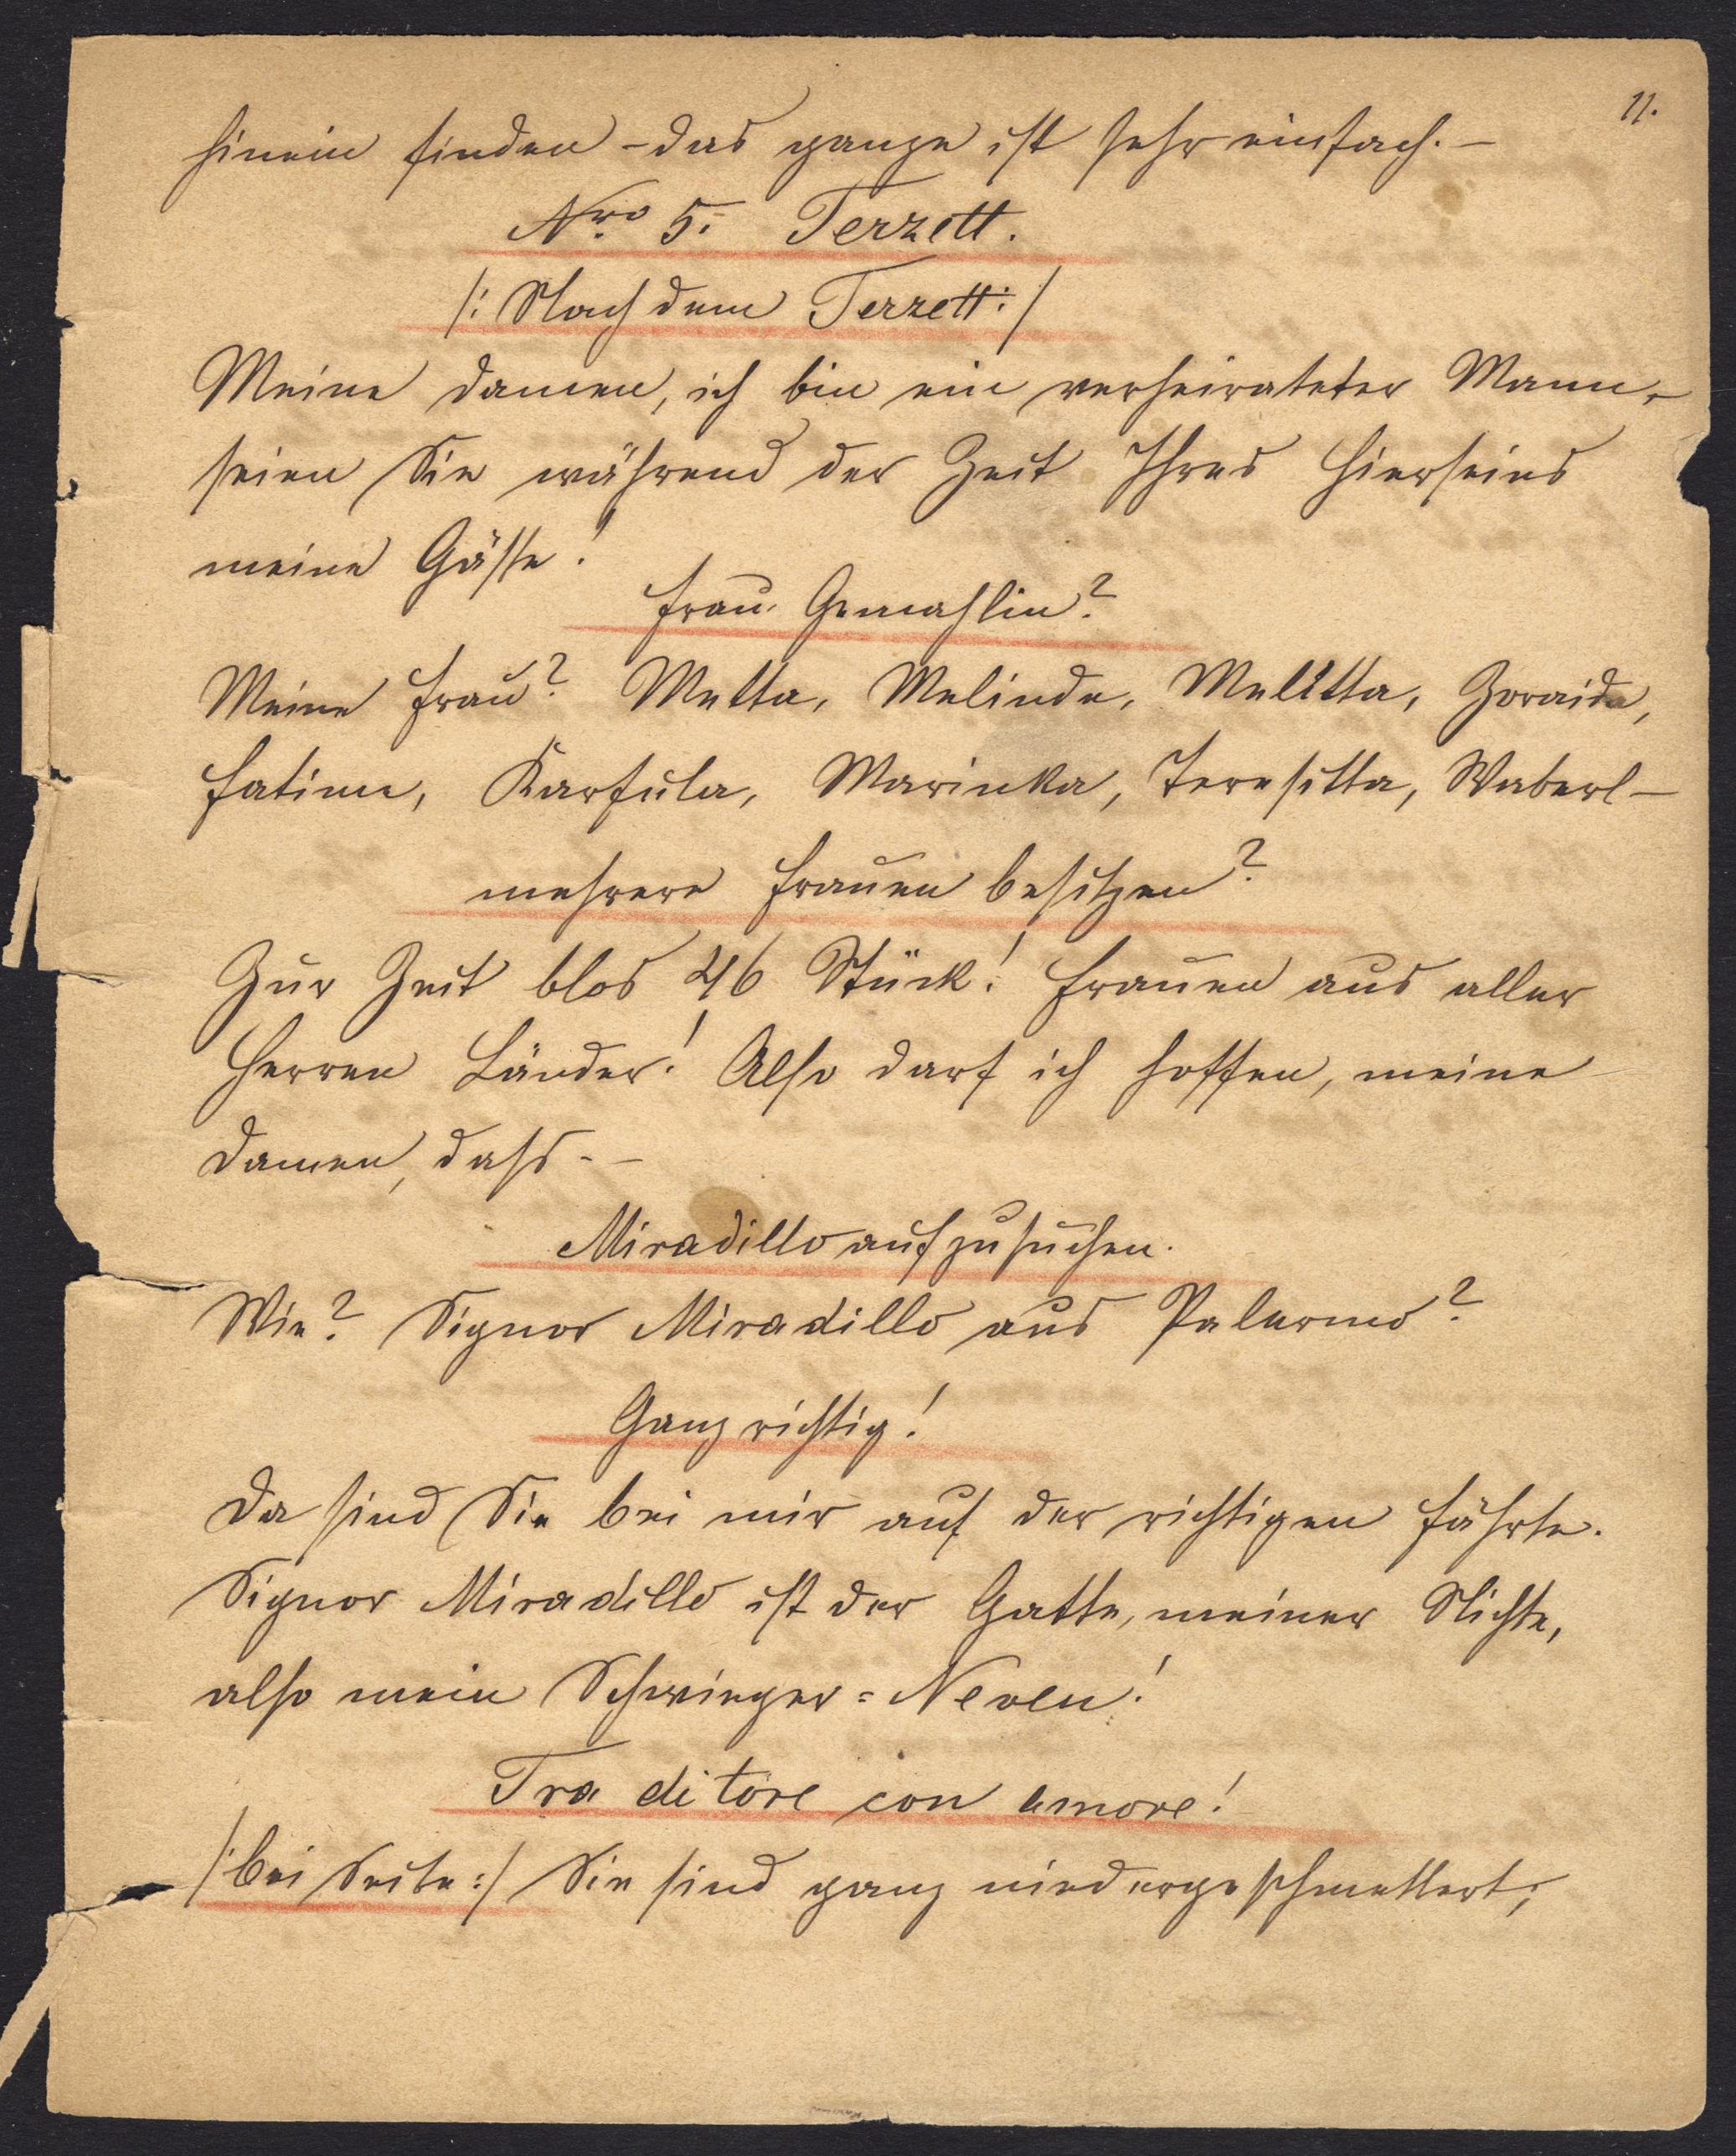 11.
hinein finden - das ganze ist sehr einfach. -
Nro 5. Terzett.
/: Nach dem Terzett :/
Meine Damen, ich bin ein verheirateter Mann,
seien Sie während der Zeit Ihres Hierseins
meine Gäste!
Frau Gemahlin?
Meine Frau? Metta, Melinde, Melitta, Zoraide,
Fatime, Karfula, Marinka, Teresitta, Waberl -
mehrere Frauen besitzen?
Zur Zeit blos 46 Stück! Frauen aus aller
Herren Länder! Also darf ich hoffen, meine
Damen, dass - -
Miradillo aufzusuchen.
Wie? Signor Miradillo aus Palermo?
Ganz richtig!
Da sind Sie bei mir auf der richtigen Fährte.
Signor Miradillo ist der Gatte, meiner Nichte,
also mein Schwieger = Neveu!
Tra ditore con amore!
/: bei Seite :/ Sie sind ganz niedergeschmettert;